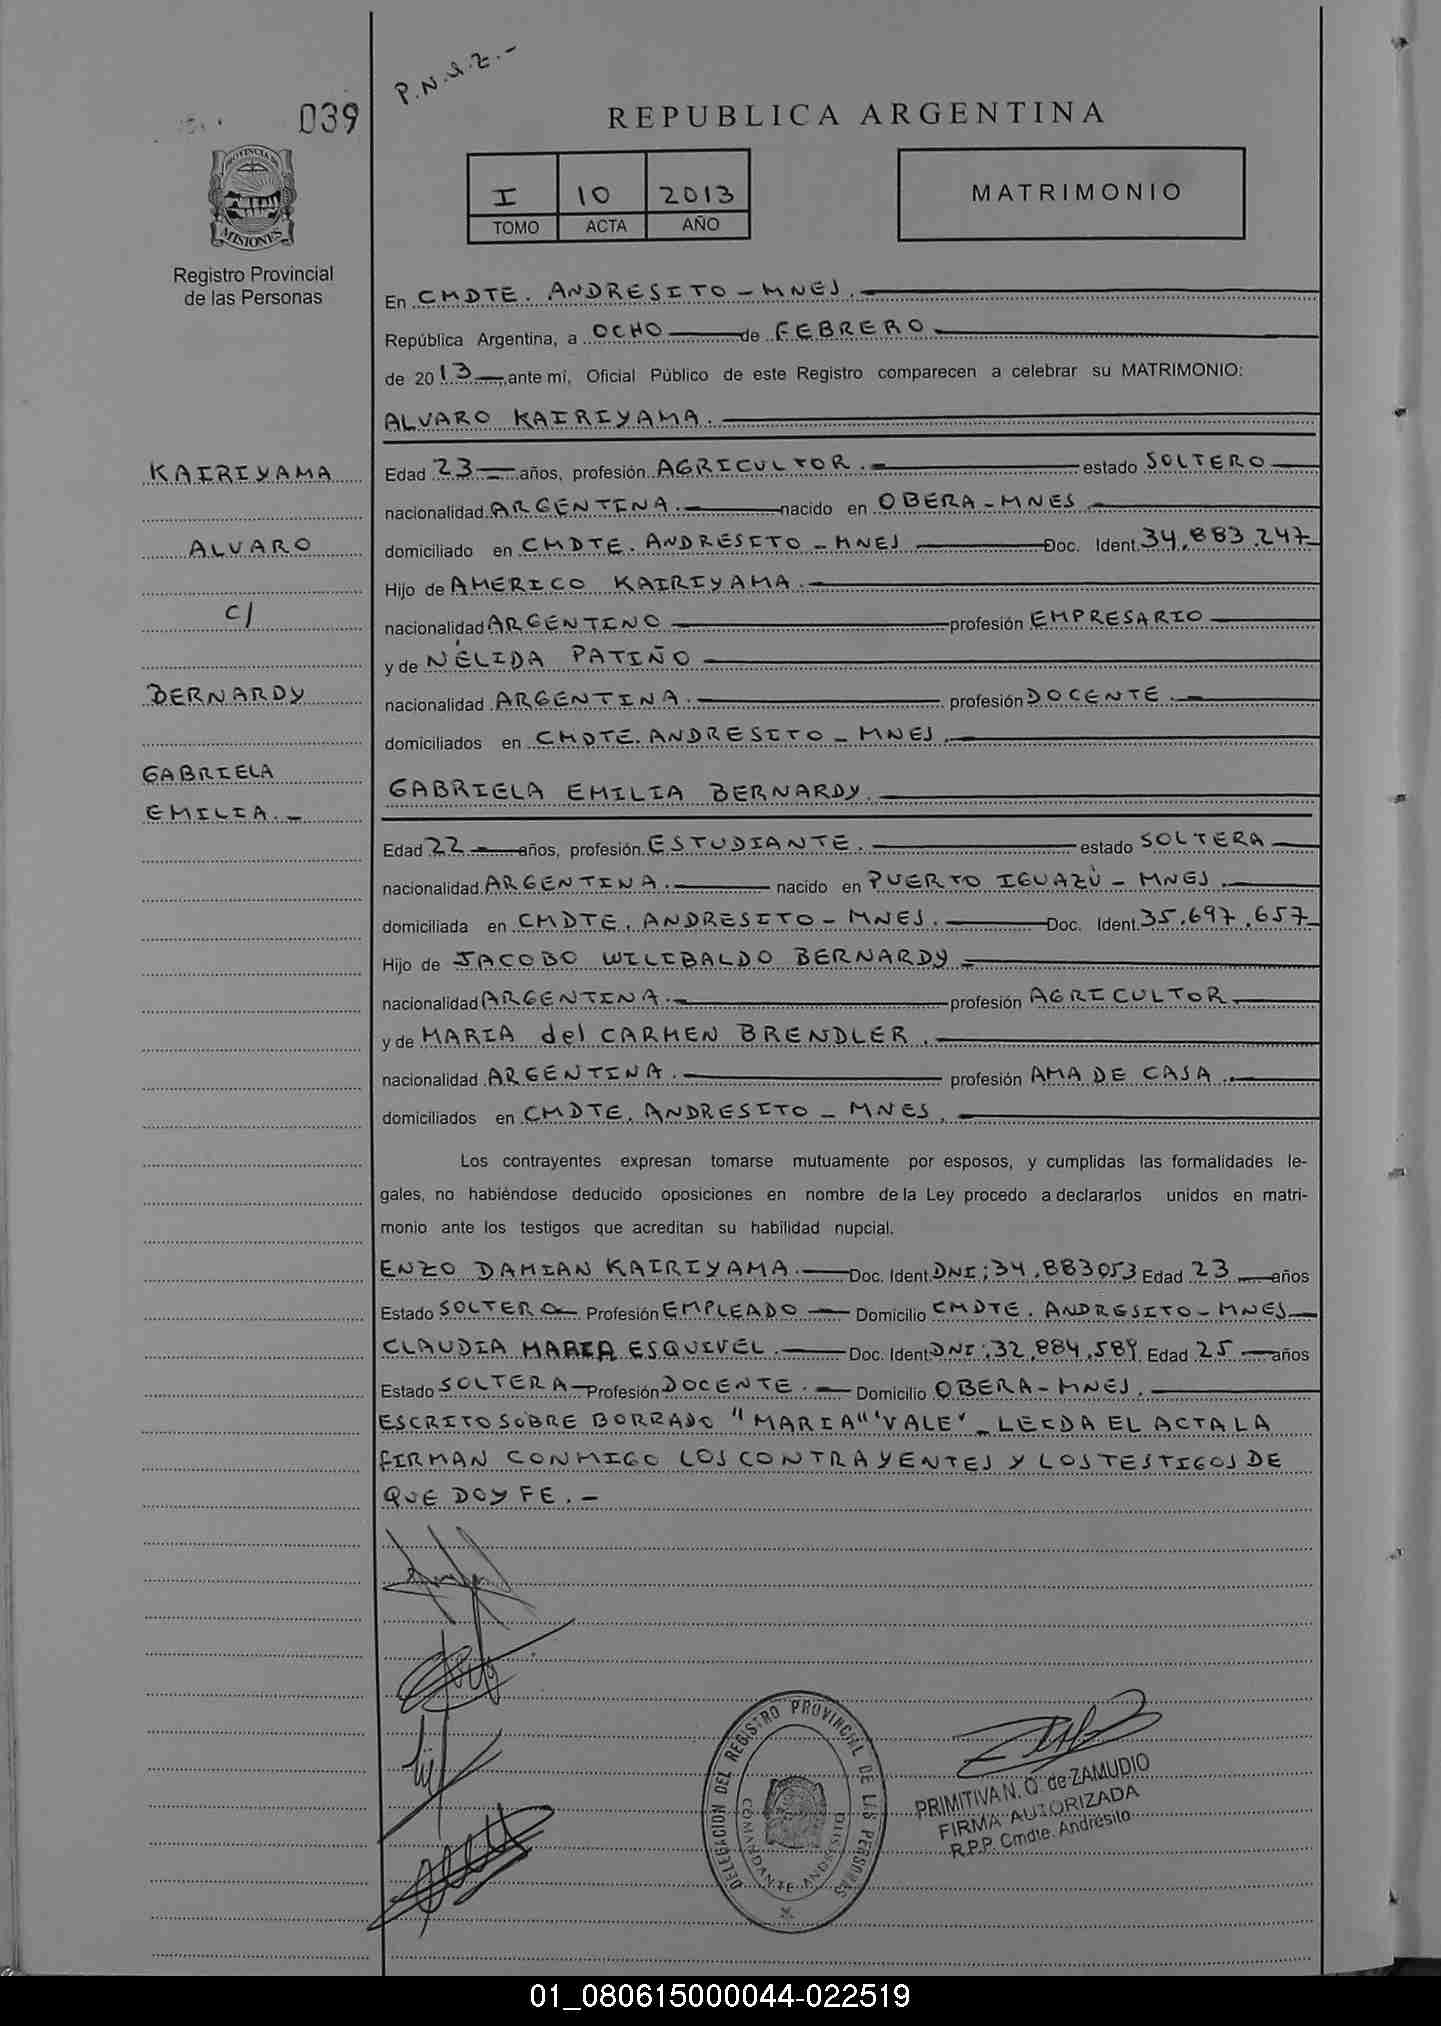 P.N.Q.Z.-
039
REPUBLICA ARGENTINA
PROVINCIA DE
MISIONES
I 10 2013
TOMO ACTA AÑO
MATRIMONIO
Registro Provincial
de las Personas
En CMDTE. ANDRESITO - MNES.
República Argentina, a OCHO de FEBRERO
de 2013, ante mí, Oficial Público de este Registro comparecen a celebrar su MATRIMONIO:
ALVARO KAIRIYAMA.
KAIRIYAMA
ALVARO
C/
BERNARDY
GABRIELA
EMILIA.-
Edad 23 años, profesión AGRICULTOR. estado SOLTERO
nacionalidad ARGENTINA. nacido en OBERA - MNES
domiciliado en CMDTE. ANDRESITO - MNES Doc. Ident. 34.883.247
Hijo de AMERICO KAIRIYAMA.
nacionalidad ARGENTINO profesión EMPRESARIO
y de NÉLIDA PATIÑO
nacionalidad ARGENTINA. profesión DOCENTE.
domiciliados en CMDTE. ANDRESITO - MNES.
GABRIELA EMILIA BERNARDY.
Edad 22 años, profesión ESTUDIANTE. estado SOLTERA
nacionalidad ARGENTINA. nacido en PUERTO IGUAZÚ - MNES.
domiciliada en CMDTE. ANDRESITO - MNES. Doc. Ident. 35.697.657
Hijo de JACOBO WILIBALDO BERNARDY
nacionalidad ARGENTINA. profesión AGRICULTOR
y de MARIA del CARMEN BRENDLER.
nacionalidad ARGENTINA. profesión AMA DE CASA.
domiciliados en CMDTE. ANDRESITO - MNES.
Los contrayentes expresan tomarse mutuamente por esposos, y cumplidas las formalidades le-
gales, no habiéndose deducido oposiciones en nombre de la Ley procedo a declararlos unidos en matri-
monio ante los testigos que acreditan su habilidad nupcial.
ENZO DAMIAN KAIRIYAMA. Doc. Ident. DNI: 34.883053 Edad 23 años
Estado SOLTERO Profesión EMPLEADO Domicilio CMDTE. ANDRESITO - MNES
CLAUDIA MARIA ESQUIVEL. Doc. Ident. DNI: 32.884.589. Edad 25 años
Estado SOLTERA Profesión DOCENTE. Domicilio OBERA - MNES.
ESCRITO SOBRE BORRADO "MARIA" "VALE" - LEIDA EL ACTA LA
FIRMAN CONMIGO LOS CONTRAYENTES Y LOS TESTIGOS DE
QUE DOY FE.-
DELEGACION DEL REGISTRO PROVINCIAL DE LAS PERSONAS
COMANDANTE ANDRESITO
PRIMITIVA N. Q. de ZAMUDIO
FIRMA AUTORIZADA
R.P.P. Cmdte. Andresito
01_080615000044-022519